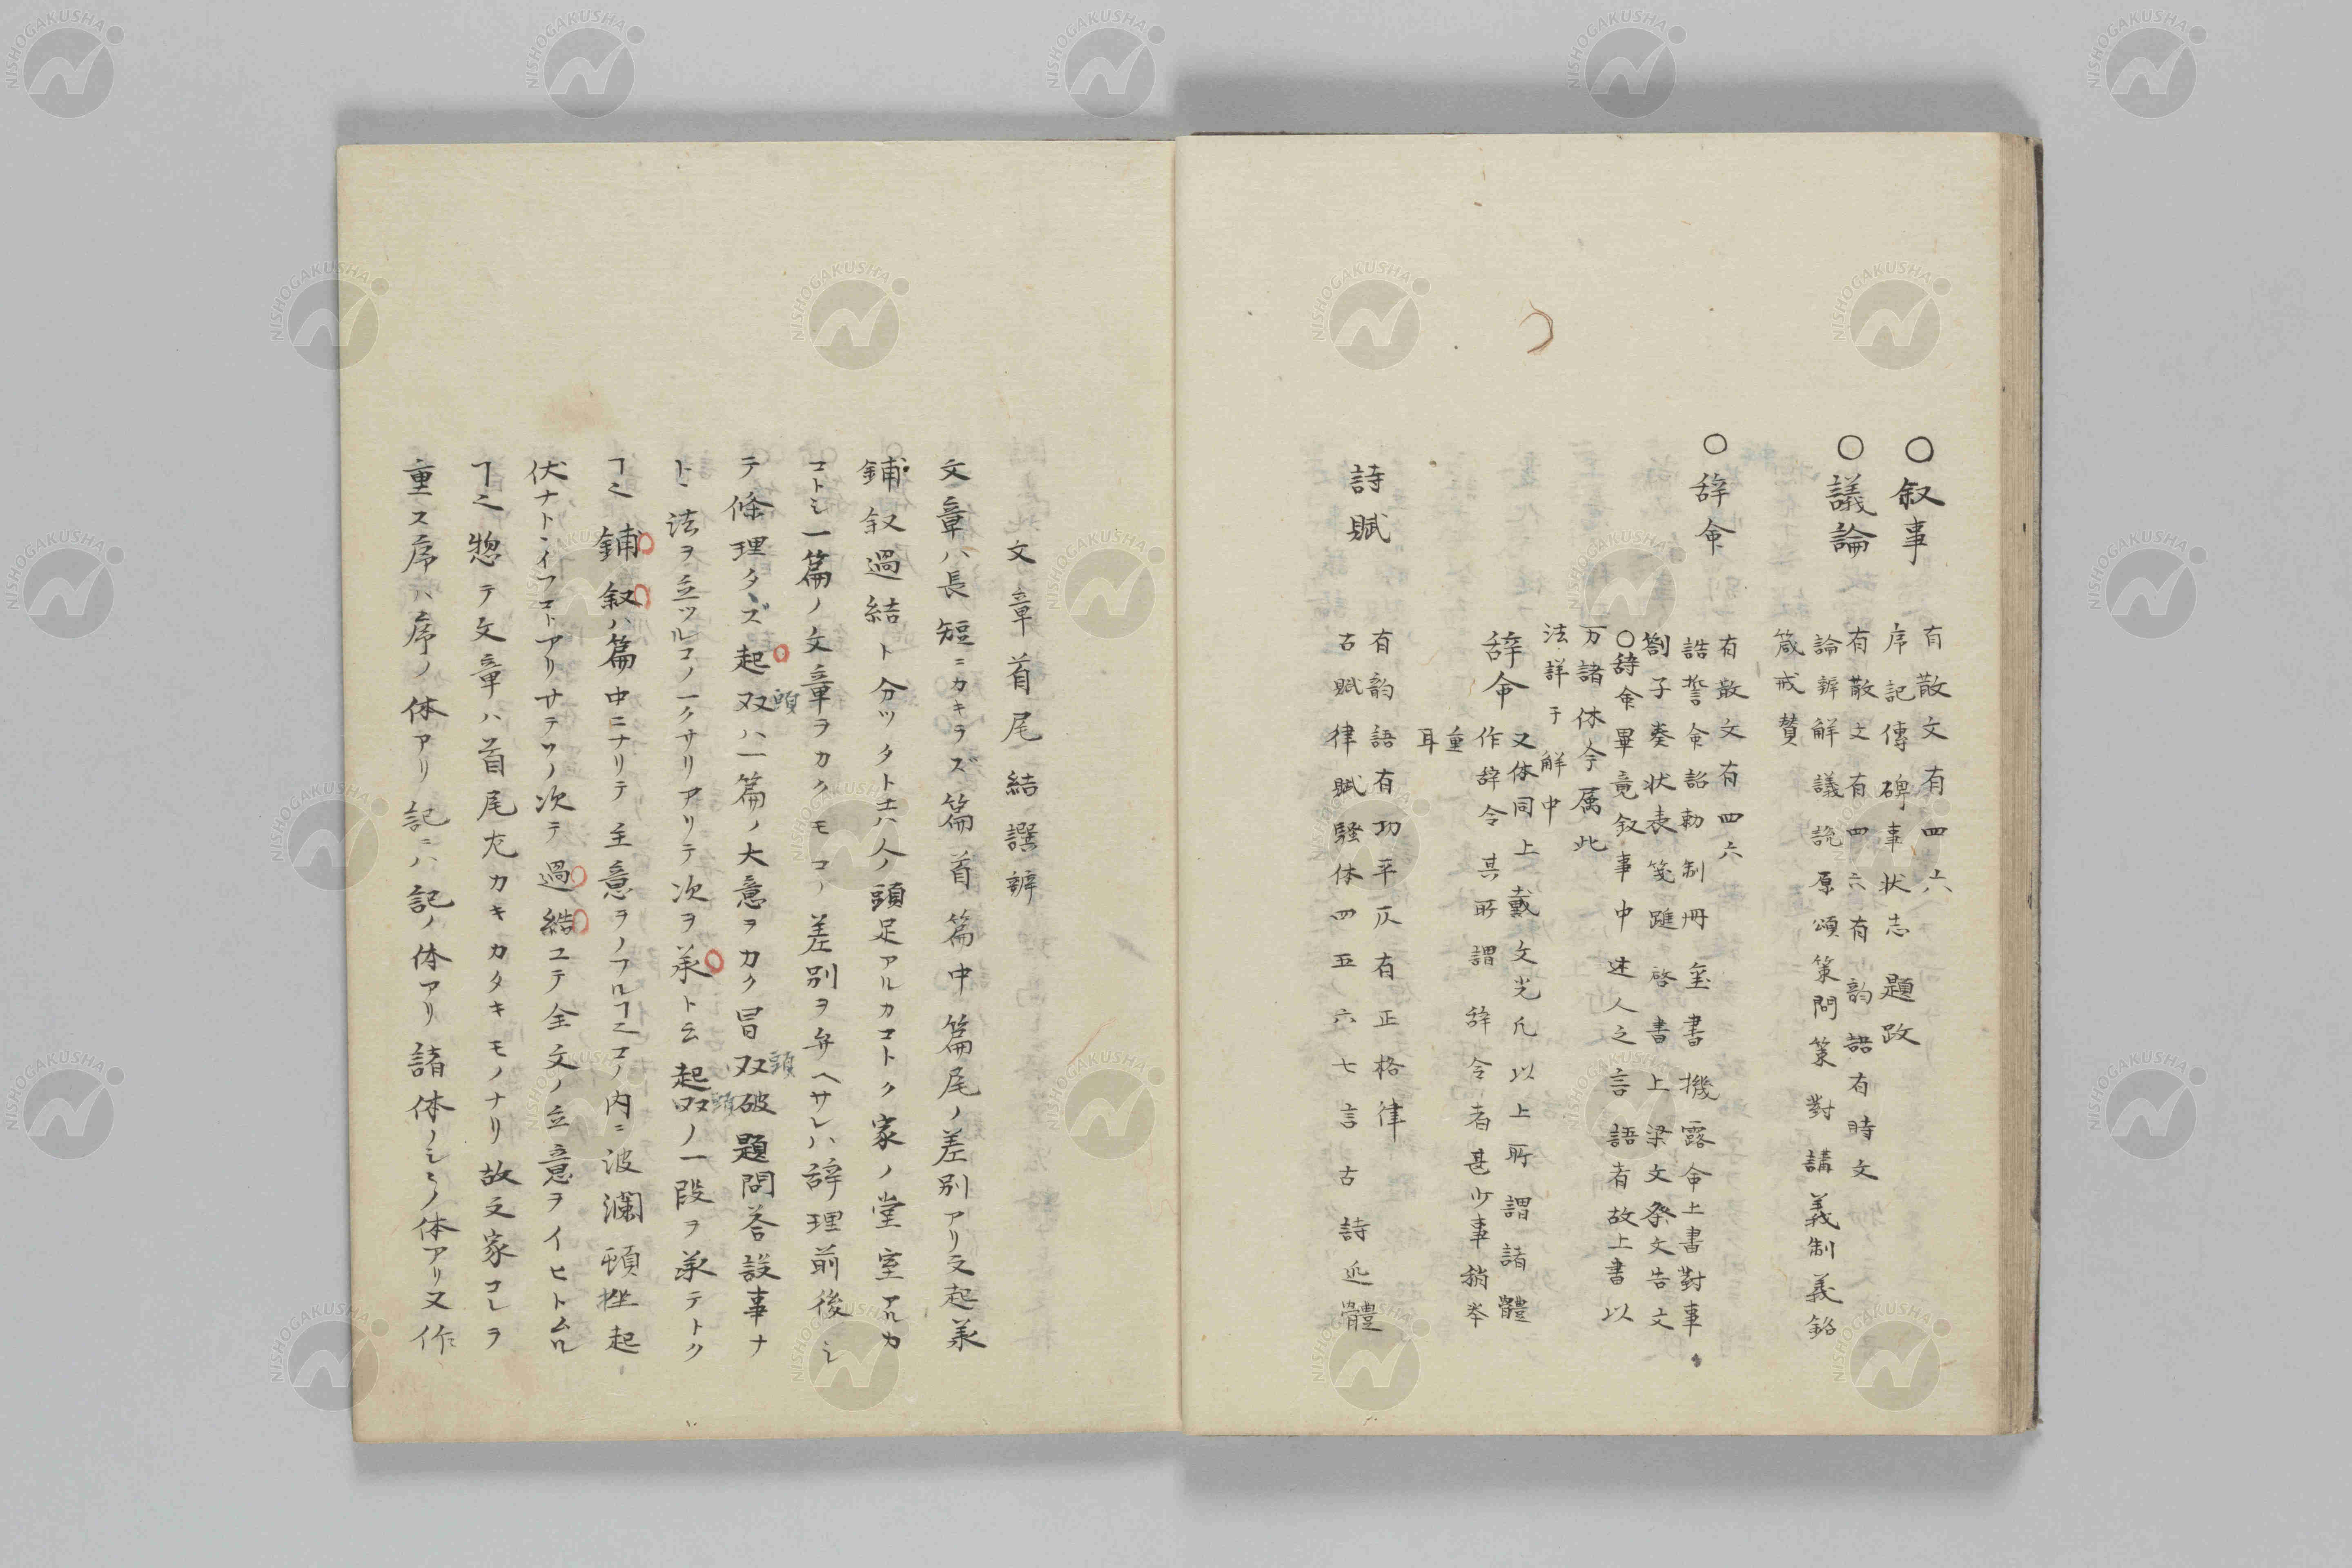 ○叙事
有散文有四六
序記傳碑事状志題跋
○議論
有散文有四六有韵語有時文
論辨解議説原頌策問策對講義制義銘
箴戒賛
○辞命
有散文有四六
誥誓命詔勅制冊璽書檄露命上書對事
劄子奏状表箋啓書上梁文祭文告文
○辞命畢竟叙事中述人之言語者故上書以
万諸体今属此
法詳于解中
辞命
又体同上戴文光凡以上所謂諸體
作辞令其所謂辞令者甚少事稍
重
耳
詩賦
有韵語有功平仄有正格律
古賦律賦騒体四五六七言古詩近體
文章首尾結譔辨
文章ハ長短ニカキラズ篇首篇中篇尾ノ差別アリ又起承
鋪叙過結ト分ツタトヘハ人ノ頭足アルカコトク家ノ堂室アルカ
コトシ一篇ノ文章ヲカクモコノ差別ヲ弁ヘサレハ辞理前後シ
テ條理タヽズ起双ハ一篇ノ大意ヲカク冒双破題問答設事ナ
頭
頭
ト法ヲ立ツルコノ一クサリアリテ次ヲ承ト云起双ノ一段ヲ承テトク
頭
ヿ也鋪叙ハ篇中ニナリテ主意ヲノフルヿ也コノ内ニ波瀾頓挫起
伏ナトヽイフコトアリサテソノ次テ過結ユテ全文ノ立意ヲイヒトムル
ヿ也惣テ文章ハ首尾尤カキカタキモノナリ故文家コレヲ
重ス序ハ序ノ体アリ記ニハ記ノ体アリ諸体ノシミノ体アリ又作